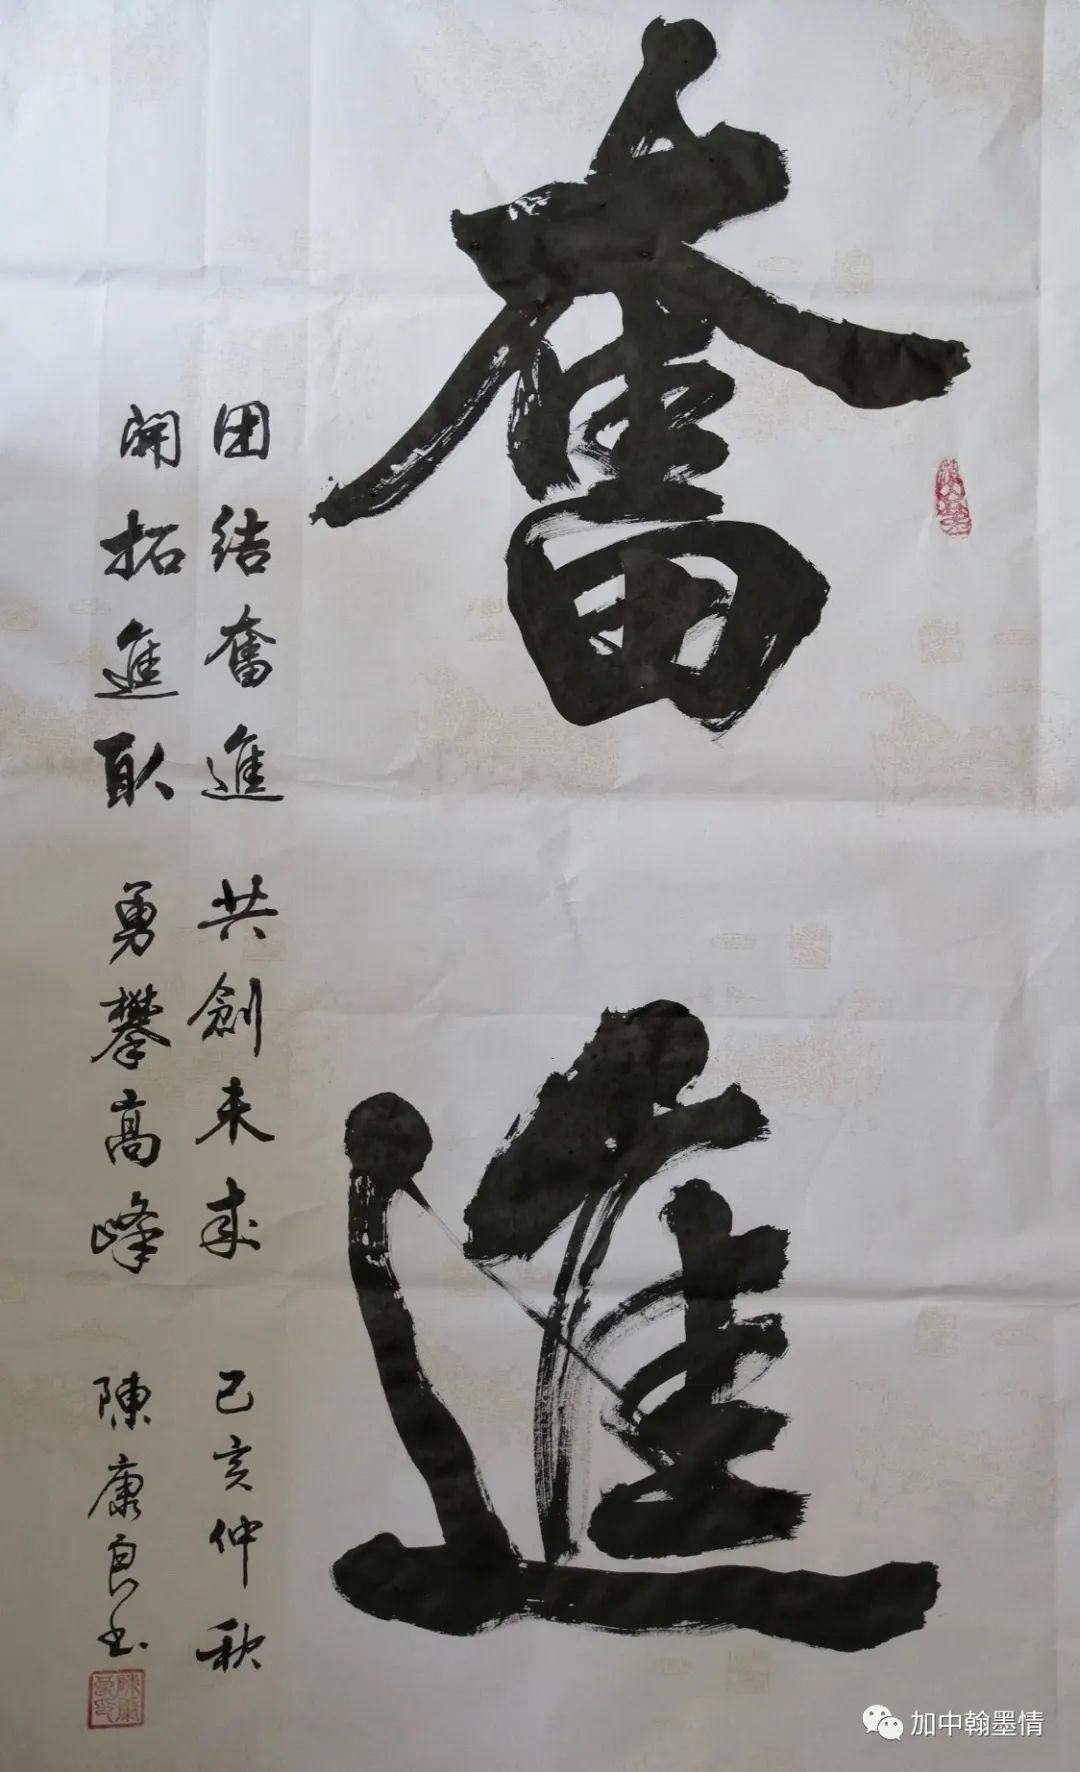 奮進
团结奮進 共創未来 己亥仲秋
開拓進取 勇攀高峰 陳康良书
加中翰墨情